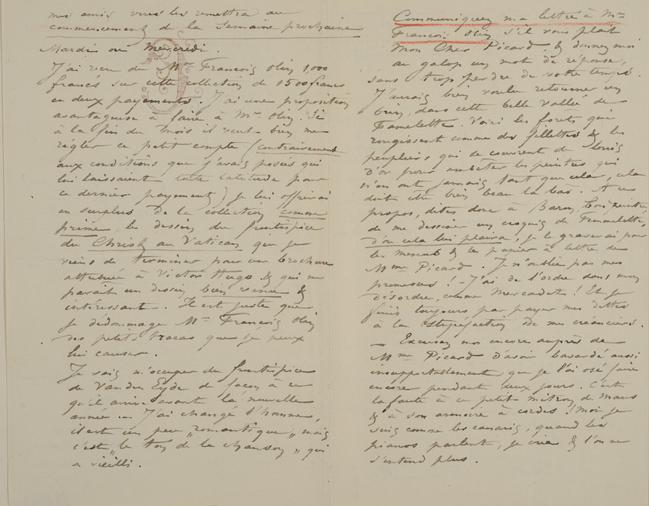 mes amis vous les remettra au
commencement de la Semaine prochaine
Mardi ou Mercredi
J'ai reçu de Mr François Olin 1,000
francs sur cette collection de 1500 francs
en deux payements. J'ai une proposition
avantageuse à faire à Mr Olin. Si
à la fin du mois il veut bien me
régler ce petit compte (contrairement
aux conditions que j'avais posées qui
lui laissaient toute latitude pour
ce dernier payement) je lui offrirai
en surplus de la collection comme
prime, le dessin du frontispice
du Christ au Vatican, que je
viens de terminer pour une brochure
attribuée à Victor Hugo & qui me
paraît un dessin bien venu &
intéressant. Il est juste que
je dédommage Mr François Olin
des petits tracas que je peux
lui causer.
Je vais m'occuper du frontispice
de Van der Eyde de façon à ce
qu'il arrive avant la nouvelle
année. J'ai changé l'homme,
il était un peu "romantique" mais
c'est "le ton de la chanson" qui
a vieilli.
Communiquez ma lettre à Mr
François Olin s'il vous plaît
Mon Cher Picard & donnez moi
au galop un mot de réponse,
sans trop perdre de votre temps.
J'aurais bien voulu retourner
bien dans cette belle vallée de
Famelette. Voici les forêts qui
rougissent comme des fillettes & les
peupliers qui se couvrent de
d'or pour embêter les peintres qui
n'en ont jamais tant que cela, cela
doit être bien beau là bas. A ce
propos, dites donc à Baron
de me dessiner un croquis de Famelette,
si cela lui plaisait, je le graverai pour
les menus & le papier à lettre de
Mme Picard. Je n'oublie pas mes
promesses! J'ai de l'ordre dans mon
désordre, comme Mercadet! Et je
finis toujours par payer mes dettes
à la stupéfaction de mes créanciers.
— Excusez moi encore auprès de
Mme Picard d'avoir bavardé aussi
insupportablement que je l'ai osé faire
encore pendant deux jours. C'est
la faute à ce petit
& à son armoire à cordes! Moi je
suis comme les canaris, quand les
pianos parlent, je crie & l'on ne
s'entend plus.